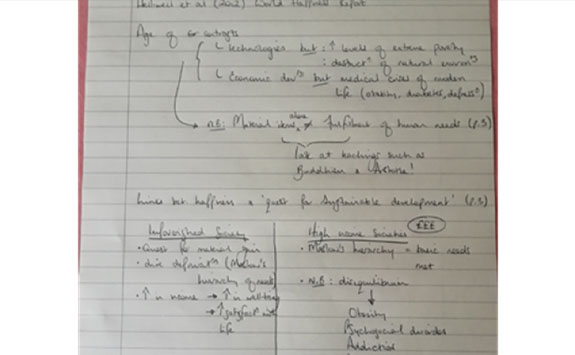 Helliwell et al (2012) World Happiness Report
Age of contrasts
↳ technologies but : ↑ levels of extreme poverty
: destructⁿ of natural environᵗˢ
↳ Economic devᵗˢ but medical crises of modern
life (obesity, diabetes, depressⁿ)
→ N.B: Material items alone ≠ fulfilment of human needs (p.3)
look at teachings such as
Buddhism &
Links bet happiness & 'quest for sustainable development' (p.3)
Impoverished Society
• Quest for material gain
• dire deprivatⁿ (Maslow's
hierarchy of needs)
• ↑ in income → ↑ in wellbeing
→ ↑ satisfactⁿ with
life
High income Societies
£££
• Maslow's hierarchy = basic needs
met
• N.B : disequilibrium
↓
Obesity
Psychosocial disorders
Addictions